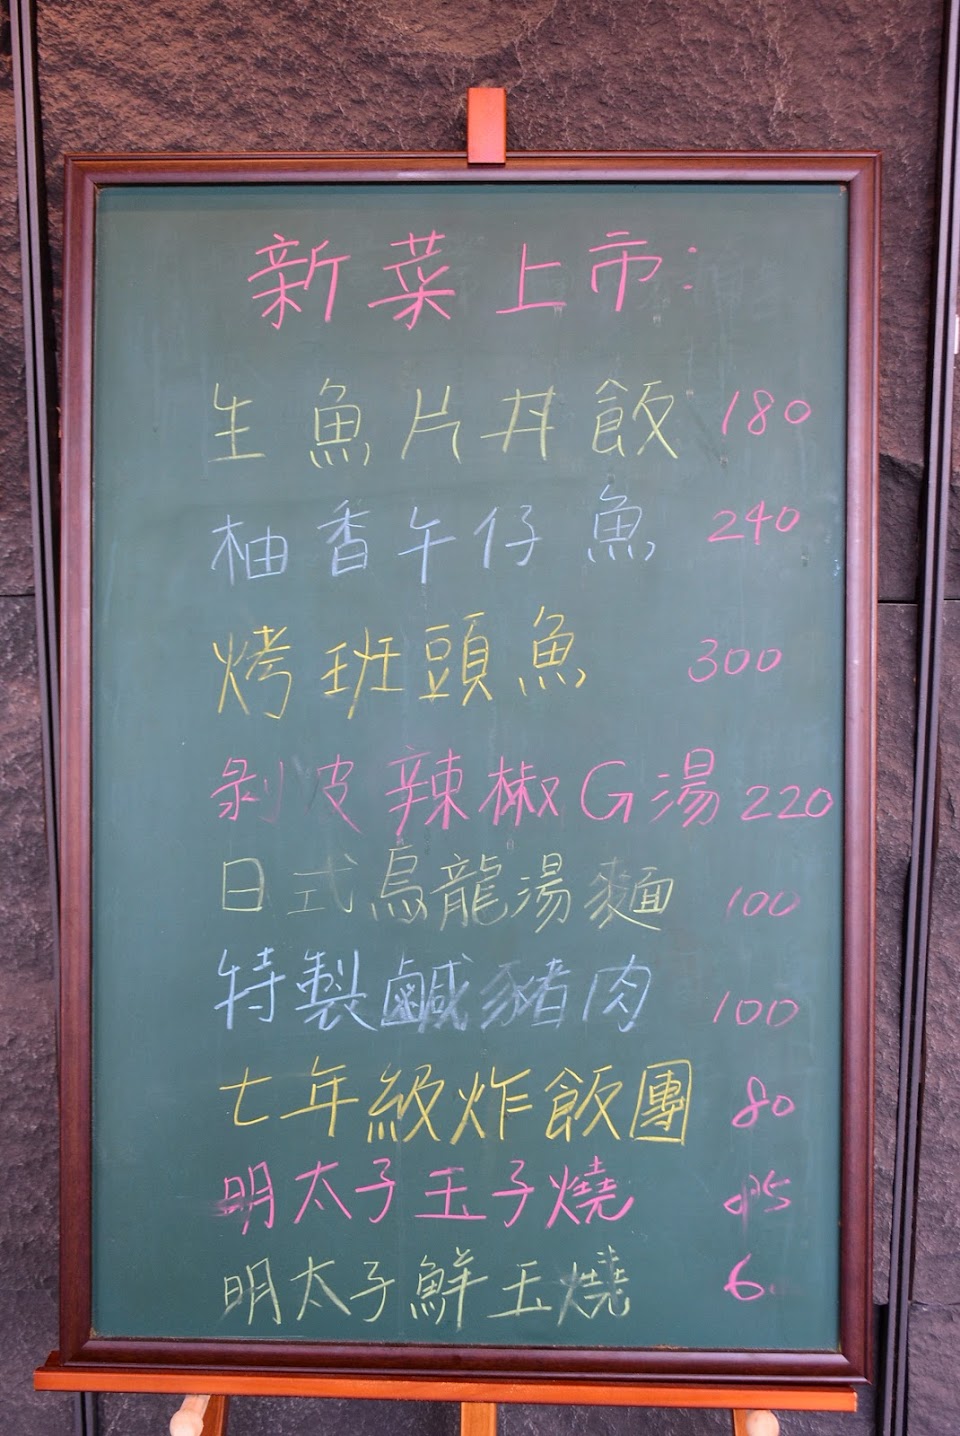 新菜上市:
生魚片丼飯 180
柚香午仔魚 240
烤班頭魚 300
剝皮辣椒G湯 220
日式烏龍湯麵 100
特製鹹豬肉 100
七年級炸飯團 80
明太子玉子燒
明太子鮮玉燒